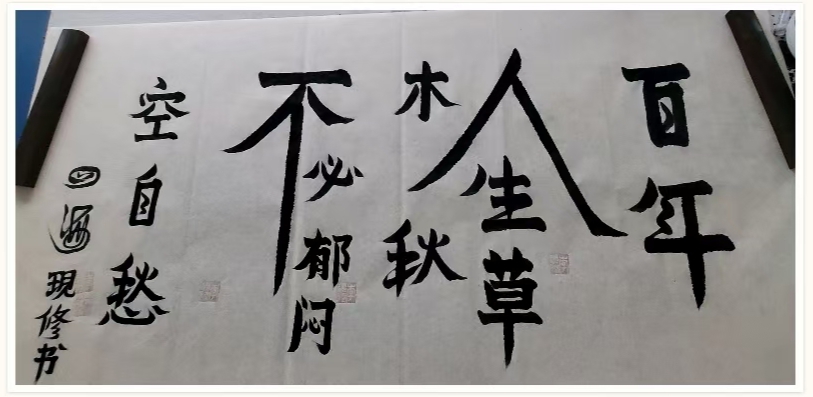 百年
人生草
木秋
不必郁闷
空自愁
四海現修书